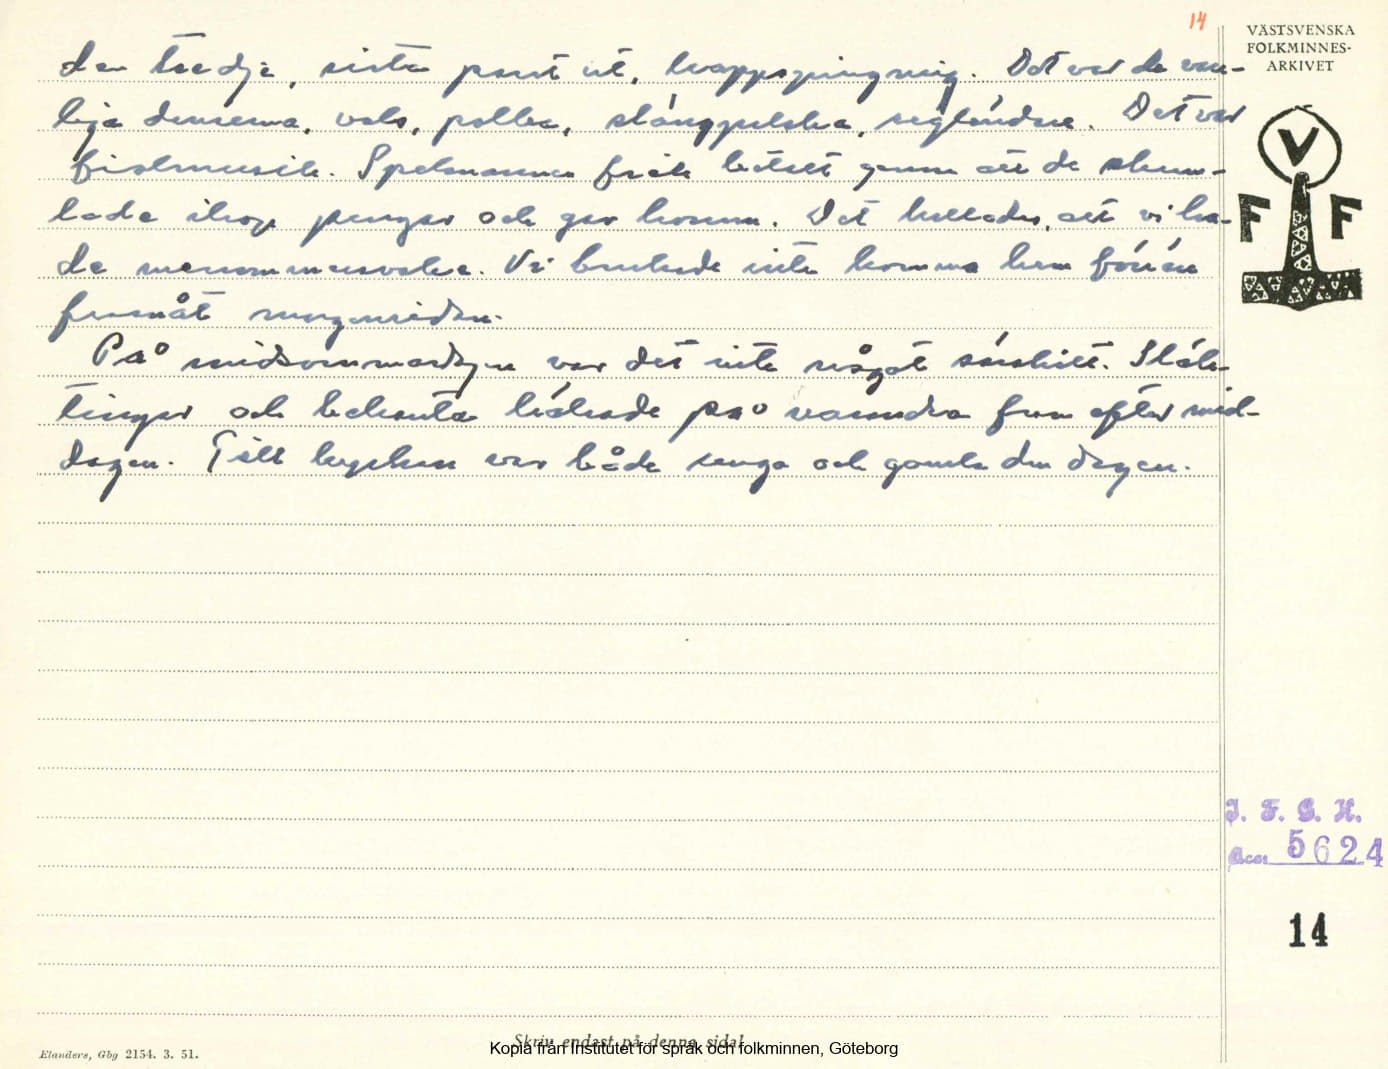 14
VÄSTSVENSKA
FOLKMINNES-
ARKIVET
den tredje, sista paret ut, knappspringning. Det var de van-
liga danserna, vals, polka, slängpolska, seglándra. Det var
fiolmusik. Spelmannen fick betalt genom att de skum-
lade ihop pengar och gav honom. Det kallades, att vi ha-
de mersommarsvaka. Vi brukade inte komma hem förrän
framåt morgonsidan.
På midsommardagen var det inte något särskilt. Släk-
tingar och bekanta hälsade på varandra fram efter mid-
dagen. Till kyrkan var både unga och gamla den dagen.
V
F F
I. F. G. H.
Acc. 5624
14
Skriv endast på denna sida!
Kopia från Institutet för språk och folkminnen, Göteborg
Elanders, Gbg 2154. 3. 51.